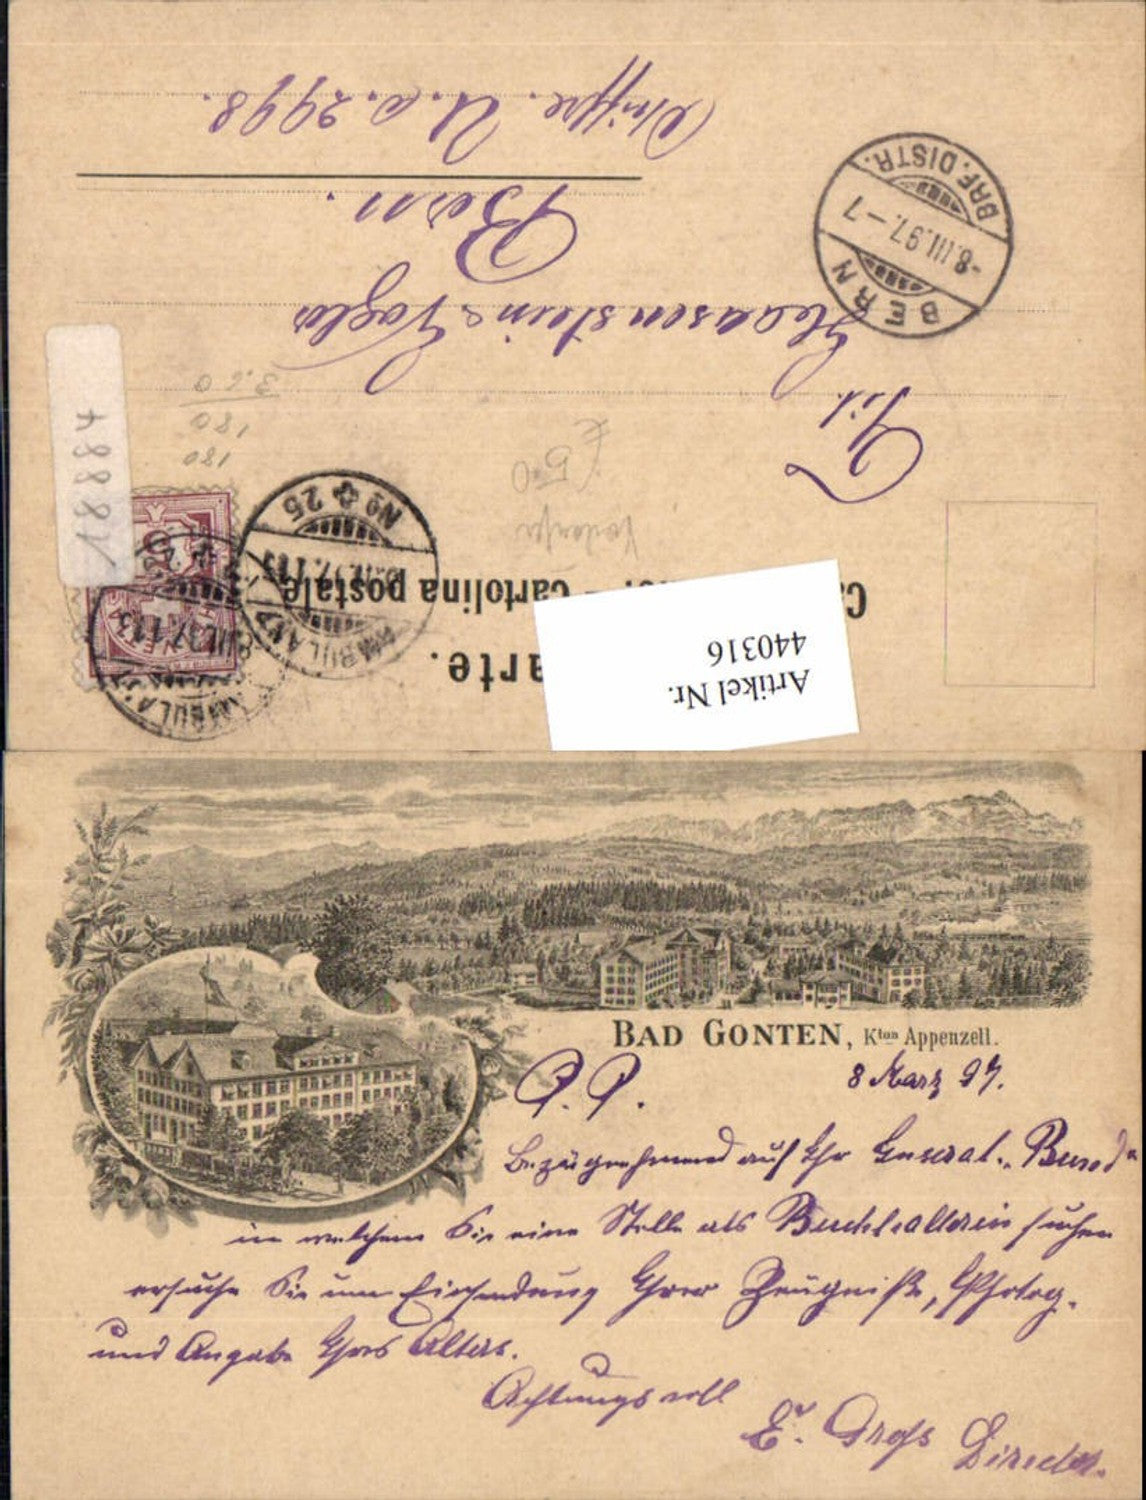 Chiffre. U. c. 2998.
Bern.
Haasenstein & Vogler
Tit.
BERN
-8.III.97.-7
BRF. DISTR.
3.60
180
180
48881
No 25
AMBULANT
Cartolina postale.
arte.
Artikel Nr.
440316
BAD GONTEN, Kton Appenzell.
8 März 97.
P. P.
Bezugnehmend auf Ihr Inserat "Bund"
in welchem Sie eine Stelle als Buchhalterin suchen
ersuche Sie um Einsendung Ihrer Zeugniße, Photog.
und Angabe Ihres Alters.
Achtungsvoll
Gross Direktor.